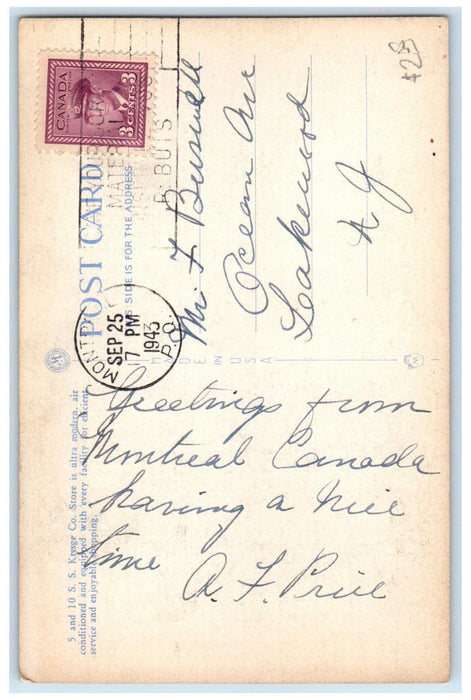 5 and 10 S. S. Kresge Co. Store is ultra modern, air
conditioned and equipped with every facility for efficient
service and enjoyable shopping.
POST CARD
SIDE IS FOR THE ADDRESS
CANADA
3 CENTS 3
MONT
SEP 25
17 PM
1943
P.Q.
MADE IN U.S.A.
Greetings from
Montreal Canada
having a nice
time
A. F. Price
Mr F Buswell
Ocean Ave
Lakewood
N J